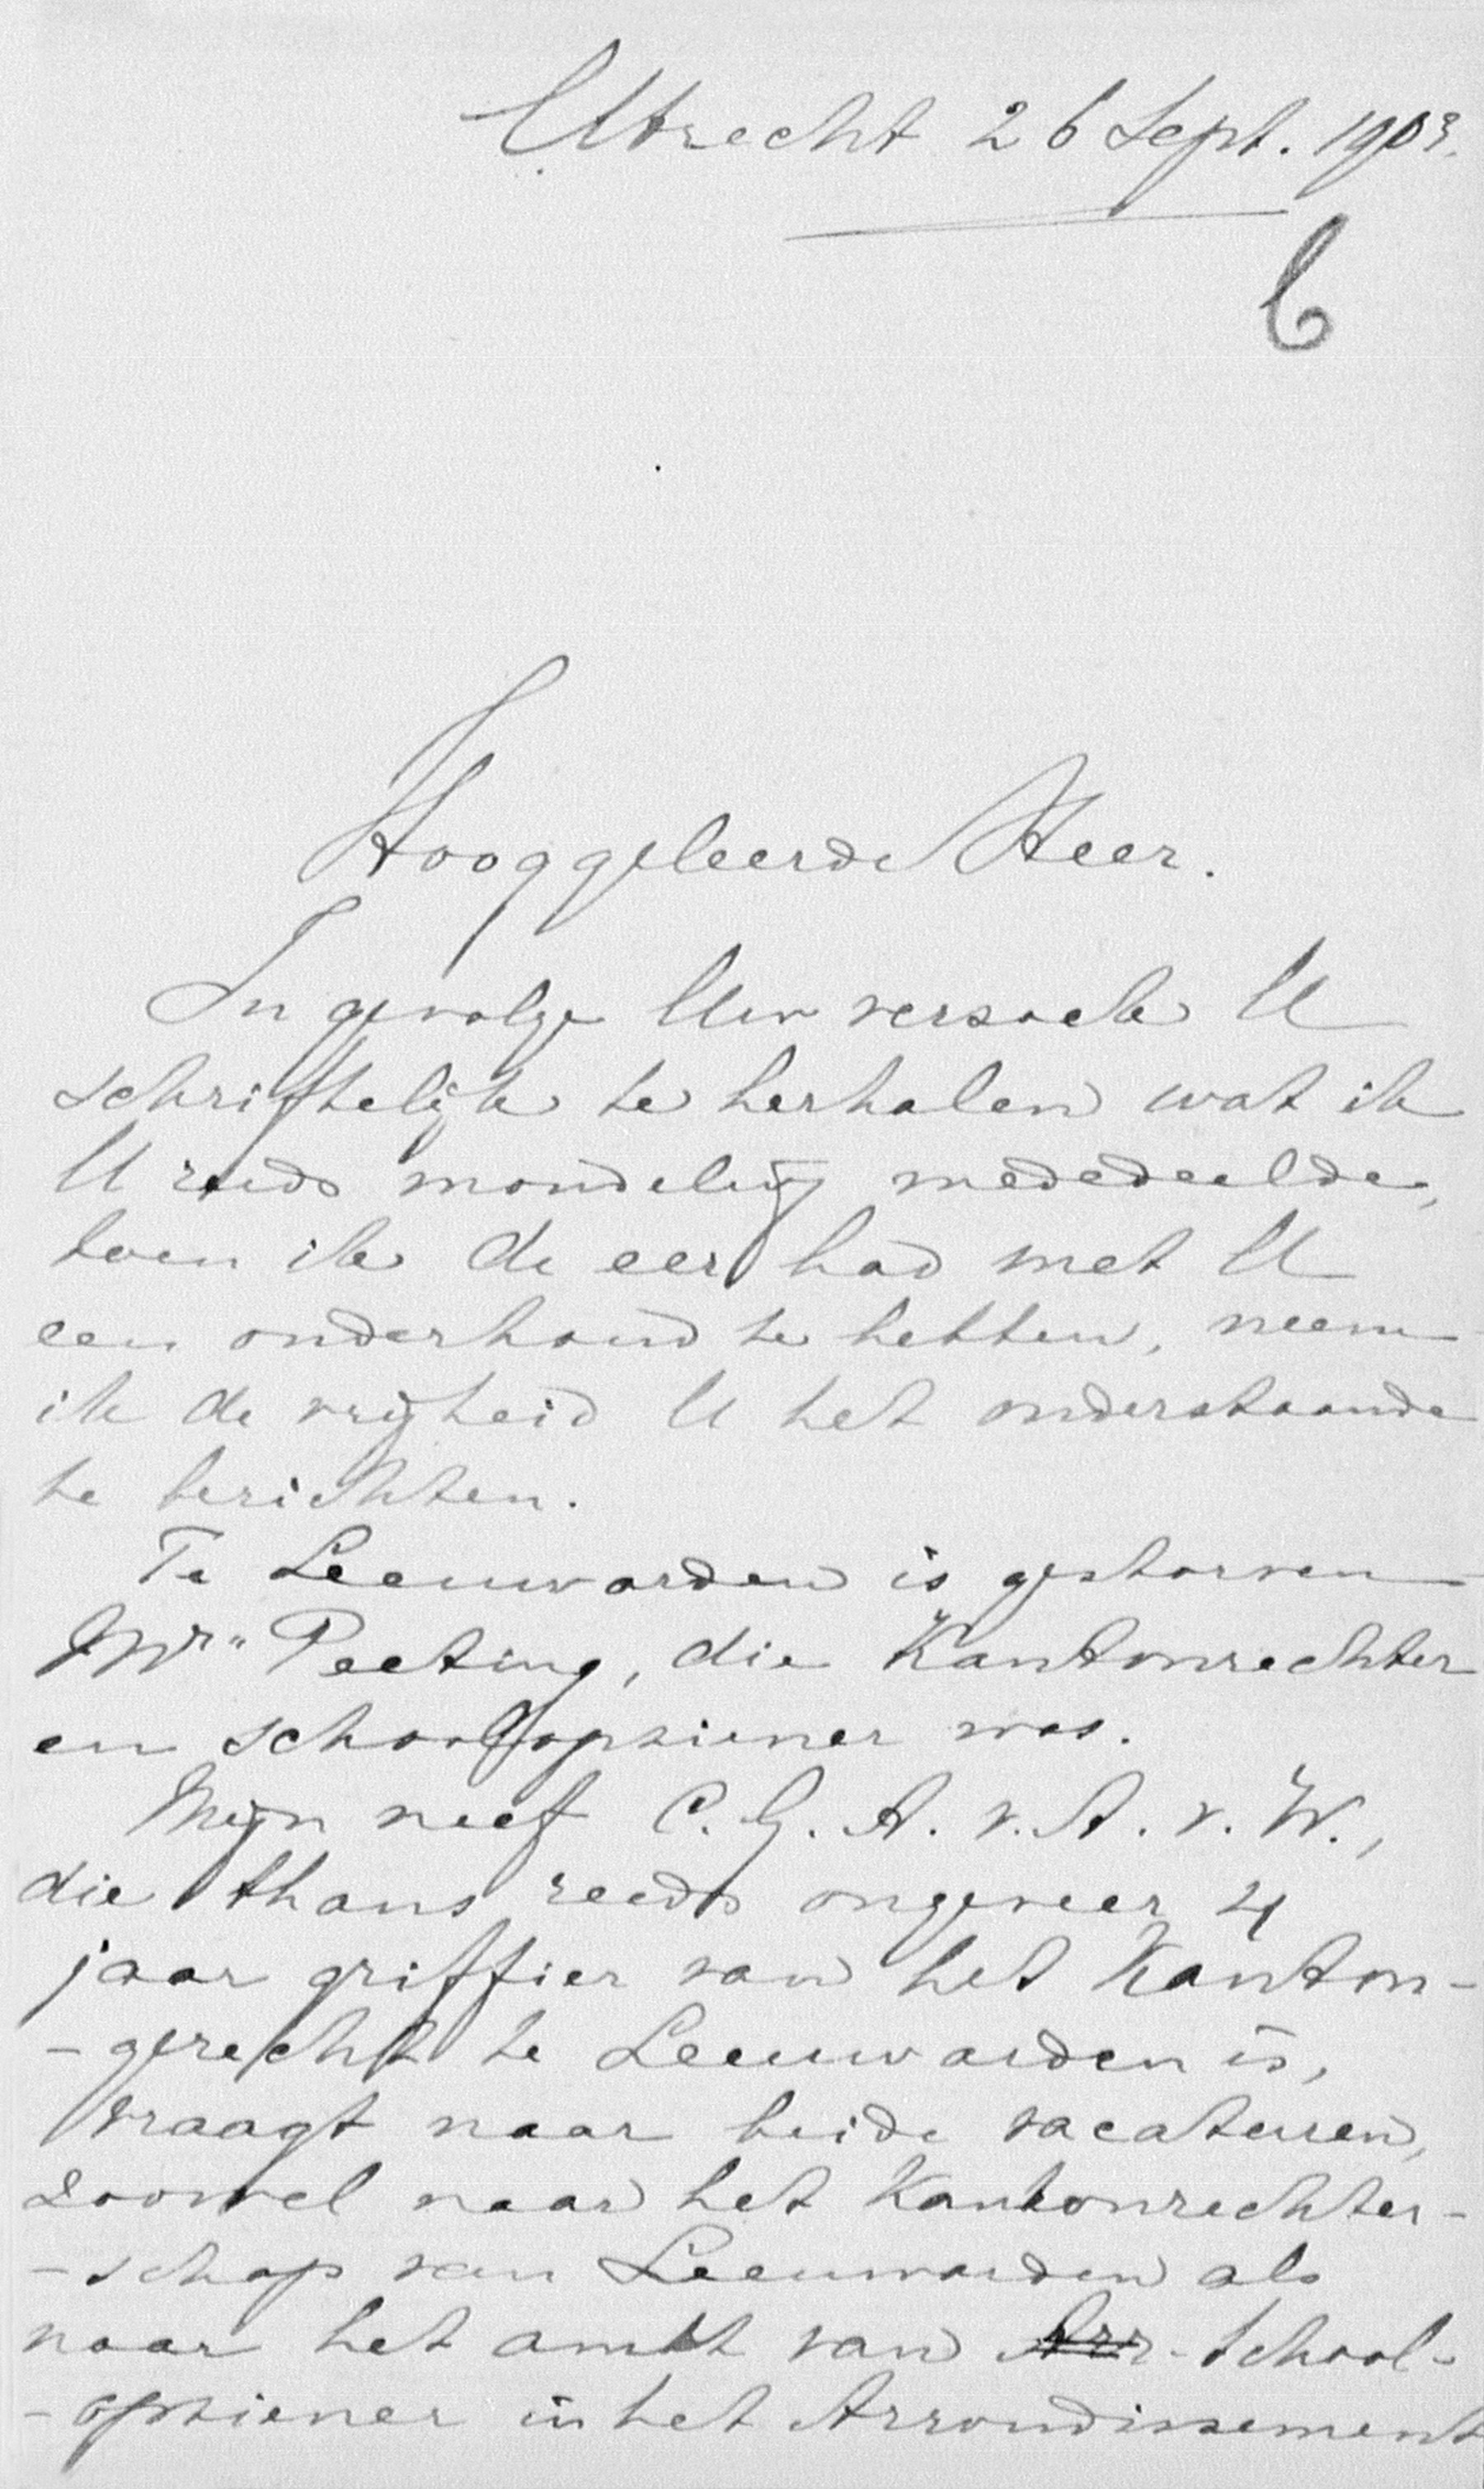 Utrecht 26 Sept. 1903.
C
Hooggeleerde Heer.
In gevolge Uw verzoek U
schriftelijk te herhalen wat ik
U reeds mondeling mededeelde,
toen ik de eer had met U
een onderhoud te hebben, neem
ik de vrijheid U het onderstaande
te berichten.
Te Leeuwarden is gestorven
Mr. Peeting, die Kantonrechter
en schoolopziener was.
Mijn neef C. G. A. v. A. v. W.,
die thans reeds ongeveer 4
jaar griffier van het Kanton-
-gerecht te Leeuwarden is,
vraagt naar beide vacaturen,
zoowel naar het Kantonrechter-
-schap van Leeuwarden als
naar het ambt van Arr-School-
-opziener in het Arrondissement